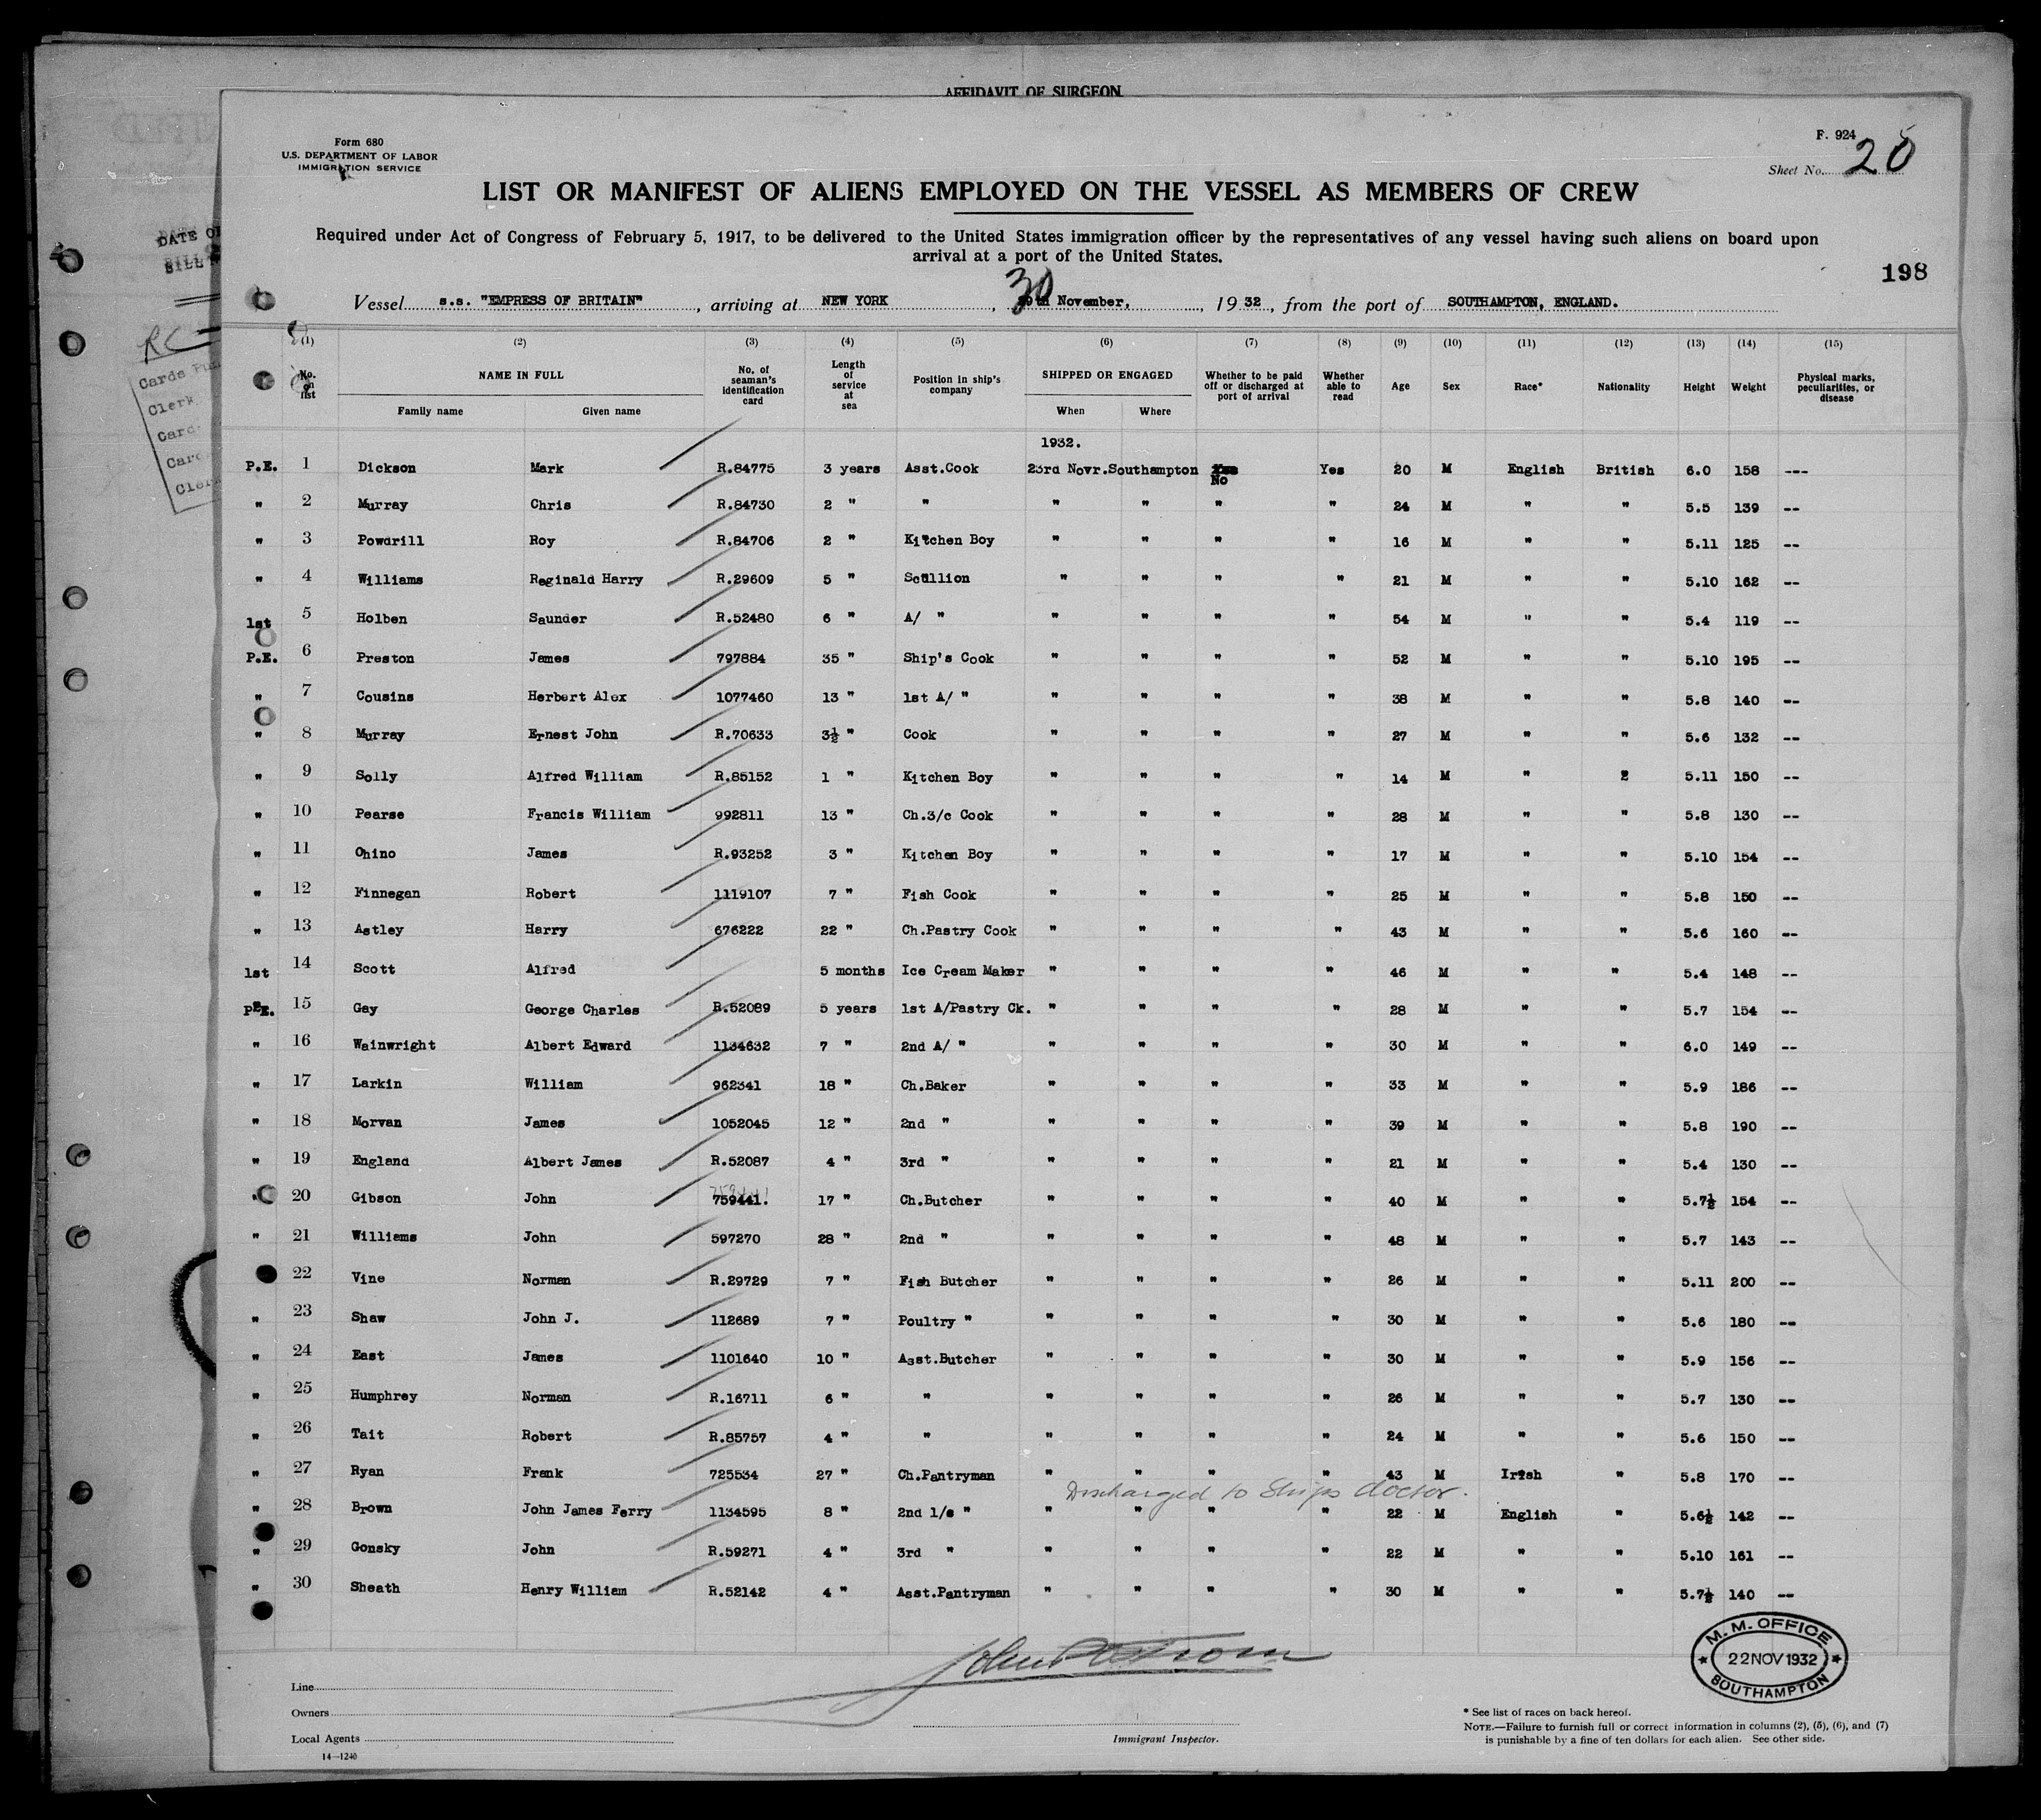 AFFIDAVIT OF SURGEON
Form 680
U.S. DEPARTMENT OF LABOR
IMMIGRATION SERVICE
F. 924
Sheet No. 20
LIST OR MANIFEST OF ALIENS EMPLOYED ON THE VESSEL AS MEMBERS OF CREW
Required under Act of Congress of February 5, 1917, to be delivered to the United States immigration officer by the representatives of any vessel having such aliens on board upon
arrival at a port of the United States.
198
Vessel s.s. "EMPRESS OF BRITAIN", arriving at NEW YORK, 30 November, 1932, from the port of SOUTHAMPTON, ENGLAND.
DATE OF
RC
Cards Pun
Clerk
Card
Card
Clerk
(1) (2) (3) (4) (5) (6) (7) (8) (9) (10) (11) (12) (13) (14) (15)
No. on list NAME IN FULL Family name Given name No. of seaman's identification card Length of service at sea Position in ship's company SHIPPED OR ENGAGED When Where Whether to be paid off or discharged at port of arrival Whether able to read Age Sex Race* Nationality Height Weight Physical marks, peculiarities, or disease
1932.
P.E. 1 Dickson Mark R.84775 3 years Asst.Cook 23rd Novr. Southampton Yes No Yes 20 M English British 6.0 158 ---
" 2 Murray Chris R.84730 2 " " " " " " 24 M " " 5.5 139 --
" 3 Powdrill Roy R.84706 2 " Kitchen Boy " " " " 16 M " " 5.11 125 --
" 4 Williams Reginald Harry R.29609 5 " Scullion " " " " 21 M " " 5.10 162 --
1st 5 Holben Saunder R.52480 6 " A/ " " " " " 54 M " " 5.4 119 --
P.E. 6 Preston James 797884 35 " Ship's Cook " " " " 52 M " " 5.10 195 --
" 7 Cousins Herbert Alex 1077460 13 " 1st A/ " " " " " 38 M " " 5.8 140 --
" 8 Murray Ernest John R.70633 3½ " Cook " " " " 27 M " " 5.6 132 --
" 9 Solly Alfred William R.85152 1 " Kitchen Boy " " " " 14 M " 2 5.11 150 --
" 10 Pearse Francis William 992811 13 " Ch.3/c Cook " " " " 28 M " " 5.8 130 --
" 11 Chino James R.93252 3 " Kitchen Boy " " " " 17 M " " 5.10 154 --
" 12 Finnegan Robert 1119107 7 " Fish Cook " " " " 25 M " " 5.8 150 --
" 13 Astley Harry 676222 22 " Ch.Pastry Cook " " " " 43 M " " 5.6 160 --
1st 14 Scott Alfred 5 months Ice Cream Maker " " " " 46 M " " 5.4 148 --
P.E. 15 Gay George Charles R.52089 5 years 1st A/Pastry Ck. " " " " 28 M " " 5.7 154 --
" 16 Wainwright Albert Edward 1134632 7 " 2nd A/ " " " " " 30 M " " 6.0 149 --
" 17 Larkin William 962341 18 " Ch.Baker " " " " 33 M " " 5.9 186 --
" 18 Morvan James 1052045 12 " 2nd " " " " " 39 M " " 5.8 190 --
" 19 England Albert James R.52087 4 " 3rd " " " " " 21 M " " 5.4 130 --
" 20 Gibson John 759441. 17 " Ch.Butcher " " " " 40 M " " 5.7½ 154 --
" 21 Williams John 597270 28 " 2nd " " " " " 48 M " " 5.7 143 --
22 Vine Norman R.29729 7 " Fish Butcher " " " " 26 M " " 5.11 200 --
" 23 Shaw John J. 112689 7 " Poultry " " " " " 30 M " " 5.6 180 --
" 24 East James 1101640 10 " Asst.Butcher " " " " 30 M " " 5.9 156 --
" 25 Humphrey Norman R.16711 6 " " " " " " 26 M " " 5.7 130 --
" 26 Tait Robert R.85757 4 " " " " " " 24 M " " 5.6 150 --
" 27 Ryan Frank 725534 27 " Ch.Pantryman " " " " 43 M Irish " 5.8 170 --
Discharged to Ships doctor.
" 28 Brown John James Ferry 1134595 8 " 2nd 1/c " " " " " 22 M English " 5.6½ 142 --
" 29 Gonsky John R.59271 4 " 3rd " " " " " 22 M " " 5.10 161 --
" 30 Sheath Henry William R.52142 4 " Asst.Pantryman " " " " 30 M " " 5.7½ 140 --
M. M. OFFICE
22 NOV 1932
SOUTHAMPTON
Line
Owners
Local Agents
14—1240
Immigrant Inspector.
* See list of races on back hereof.
NOTE.—Failure to furnish full or correct information in columns (2), (5), (6), and (7)
is punishable by a fine of ten dollars for each alien. See other side.